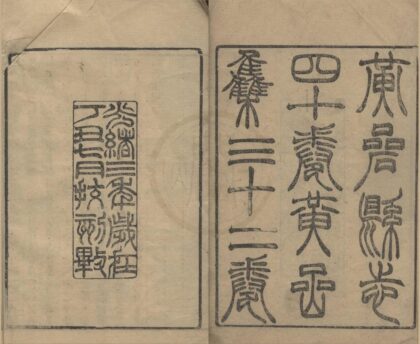 黃嵒縣志
四十卷黃嵒
集三十二卷
光緒三年歲在
丁丑七月校刊畢